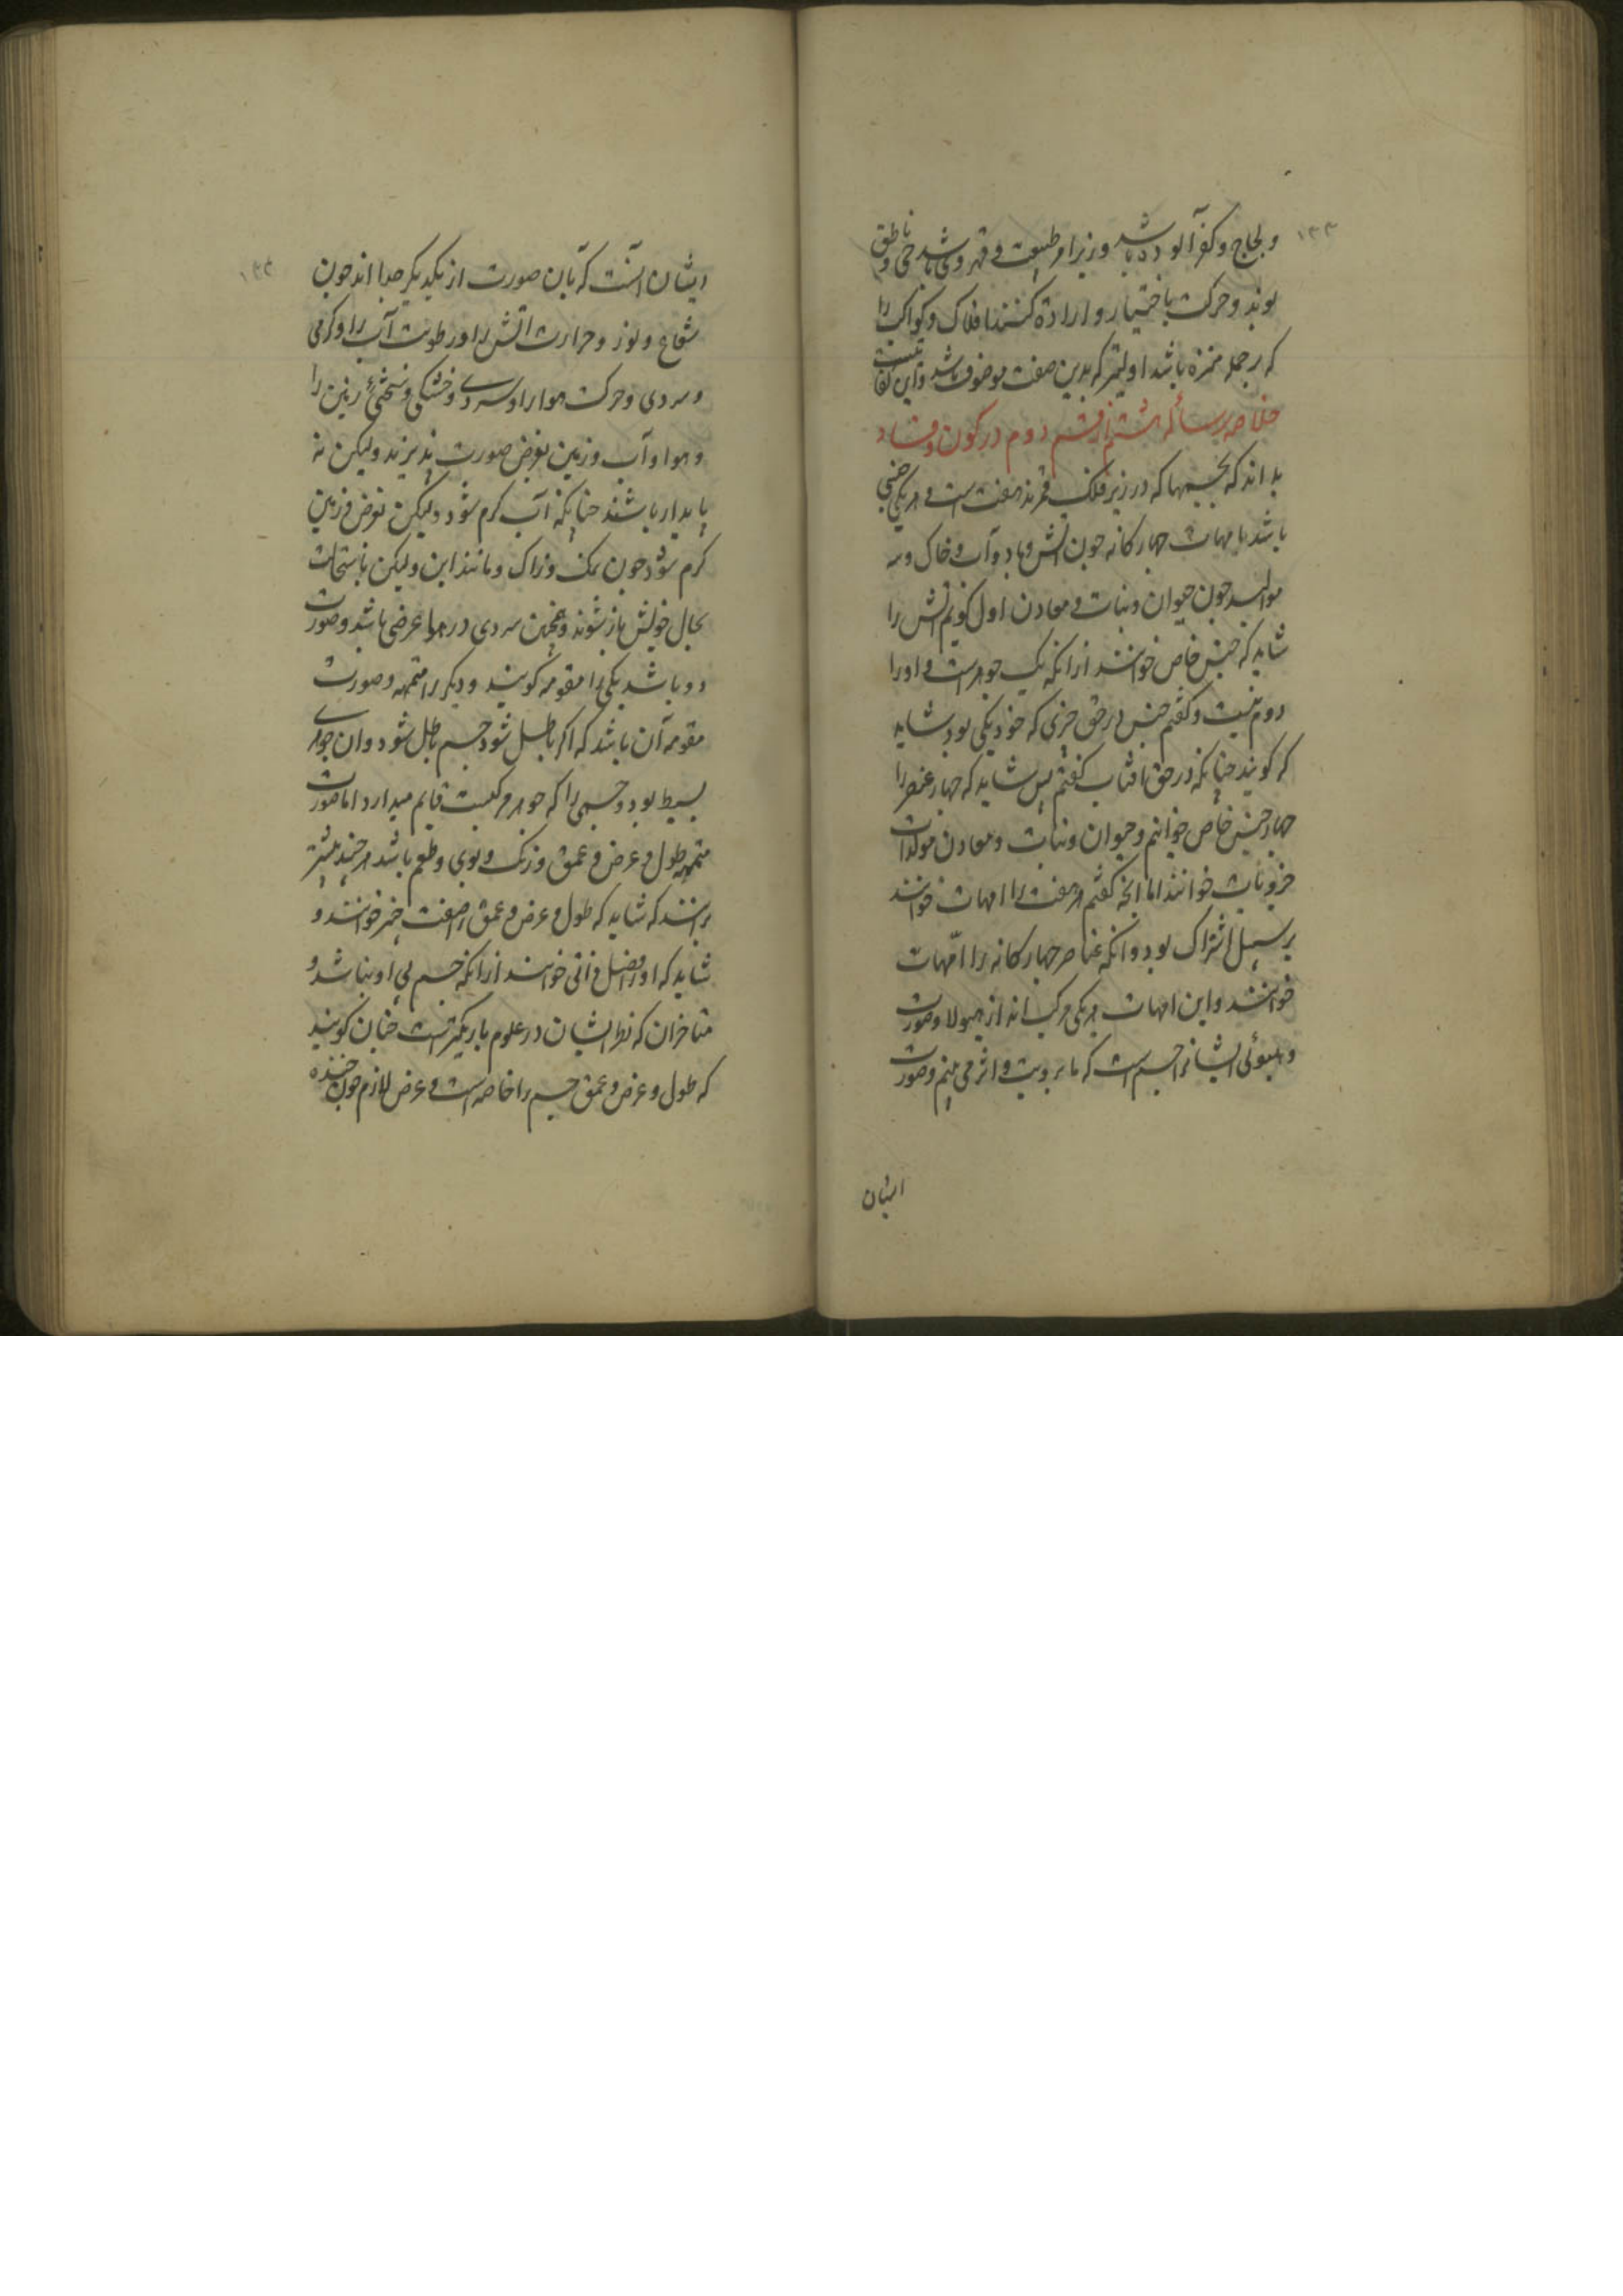 ۱۳۳
و لجاج و کفر آلوده باشد و زیر امر طبیعت و قهر وی باشد حی و ناطق
بوند و حرکت باختیار و اراده کنند افلاک و کواکب را
که برجمله منزه باشد اولیتر که بدین صفت موصوف باشد و این کفایتست
خلاصه رساله هشتم از قسم دوم در کون و فساد
بداند که جسمها که در زیر فلک قمرند هفت است و هر یکی جنسی
باشد امهات چهارکانه چون اتش و باد و آب و خاک و سه
موالید چون حیوان و نبات و معادن اول کوئیم اتش را
شاید که جنس خاص خوانند ازانکه یک جوهرست و او را
دوم نیست و کفتیم جنس در حق چیزی که خود یکی بود شاید
که کویند چنانکه در حق افتاب کفتیم پس شاید که چهار عنصر را
چهار جنس خاص خوانیم و حیوان و نبات و معادن مولدات
جزویات خوانند اما انچه کفتیم هر هفت را امهات خوانند
بر سبیل اشتراک بود و انکه عناصر چهارکانه را امّهات
خوانند و این امهات هر یکی مرکب اند از هیولا و صورت
و هیولی ایشانرا جسم است که ما برویت و اثر می بینیم و صورت
ایشان
۱۳۴
ایشان آنست که بآن صورت از یکدیکر جدا اند چون
شعاع و نور و حرارت اتش را و رطوبت آب را و کرمی
و سردی و حرکت هوا را و سردی و خشکی و سختی زمین را
و هوا و آب و زمین بعرض صورت پذیرند ولیکن نه
پایدار باشند چنانکه آب کرم شود ولیکن بعرض و زمین
کرم شود چون نمک و زاک و مانند این ولیکن باستحالت
بحال خویش باز شوند و همچنین سردی در هوا عرضی باشد و صورت
دو باشد یکی را مقومه کویند و دیکر را متممه و صورت
مقومه آن باشد که اکر باطل شود جسم باطل شود و ان جوهری
بسیط بود و جسمی را که جوهر مرکبست قایم میدارد اما صورت
متممه طول و عرض و عمق و رنک و بوی و طعم باشد هر چند بیشتر
برانند که شاید که طول و عرض و عمق را صفت جسم خوانند و
شاید که او را فصل ذاتی خوانند ازانکه جسم بی او نباشد و
متاخران که نظر ایشان در علوم باریکترست چنان کویند
که طول و عرض و عمق جسم را خاصه است و عرض لازم چون خنده